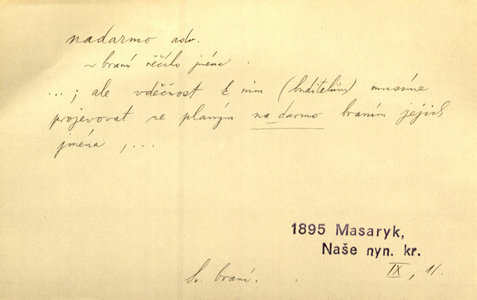 nadarmo adv.
~ braní něčího jména.
...; ale vděčnost k nim (buditelům) musíme
projevovat ne planým na_darmo braním jejich
jména, ...
1895 Masaryk,
Naše nyn. kr.
IX, 11.
Sv. braní.